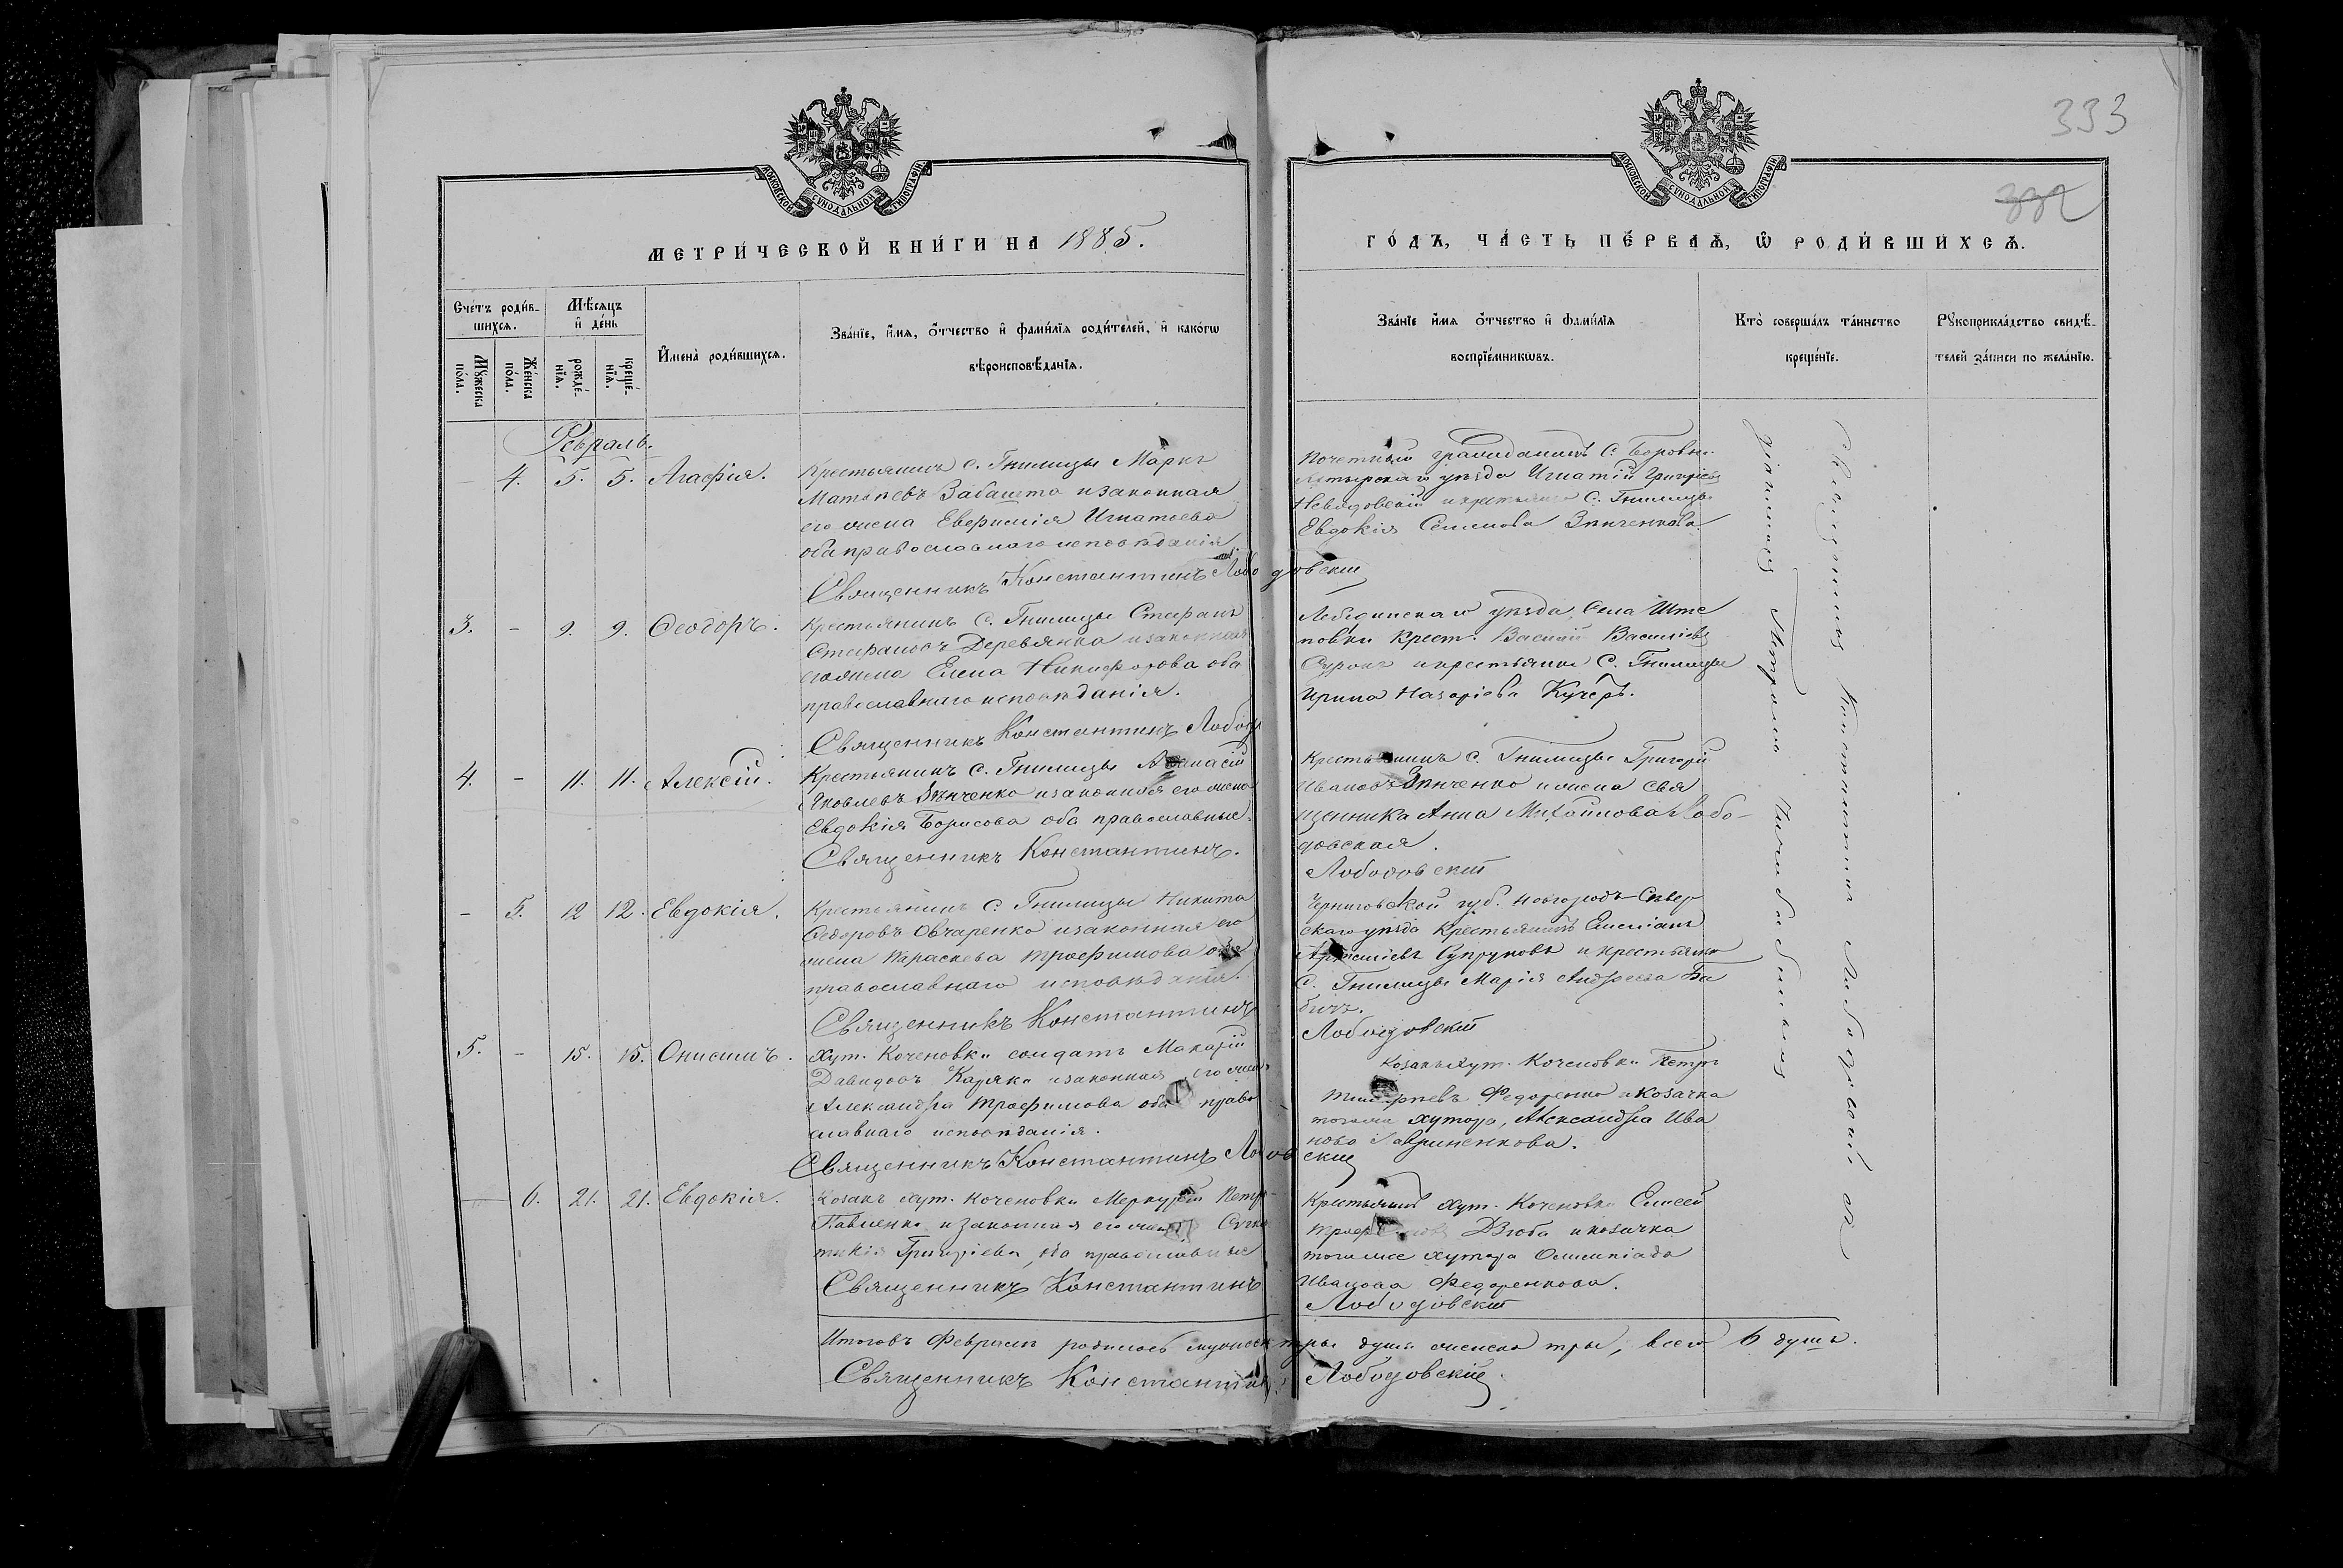 333
332
МОСКОВСКОЙ СѴНОДАЛЬНОЙ ТИПОГРАФІИ
МОСКОВСКОЙ СѴНОДАЛЬНОЙ ТИПОГРАФІИ
МЕТРИ́ЧЕСКОЙ КНИ́ГИ НА 1885.
ГО́ДЪ, ЧА́СТЬ ПЕ́РВАѦ, Ѽ РОДИ́ВШИХСѦ.
Счетъ роди́вшихсѧ.
Мꙋ́жеска по́ла.
Же́нска по́ла.
Мѣ́сѧцъ и де́нь
рожде́нїѧ.
креще́нїѧ.
И҆мена̀ роди́вшихсѧ.
Зва́нїе, и҆́мѧ, ѻ҆́тчество и҆ фами́лїѧ роди́телей, и҆ како́гѡ
вѣроисповѣ́данїѧ.
Зва́нїе и҆́мѧ ѻ҆́тчество и҆ фами́лїѧ
воспрїе́мникѡвъ.
Кто̀ соверша́лъ та́инство
креще́нїе.
Рꙋкоприкла́дство свидѣ́-
телей за́писи по жела́нїю.
Февраль.
4. 5. 5. Агафія.
Крестьянинъ с. Гнилицы Маркъ
Матвѣевъ Забашта и законная
его жена Евфимія Игнатьева
оба православнаго исповѣданія.
Священникъ Константинъ Лободовскій
Почетный гражданинъ с. Боровни
уѣзда Игнатій Григорьевъ
и крестьянка с. Гнилицы
Евдокія Семенова Зинченкова.
3. - 9. 9. Ѳеодоръ.
Крестьянинъ с. Гнилицы Стефанъ
Стефановъ Деревянка и законная
его жена Елена Никифорова оба
православнаго исповѣданія.
Священникъ Константинъ Лободо
Лебединскаго уѣзда, Села Ште
повки Крест. Василій Васильевъ
и крестьянка с. Гнилицы
Ирина Назаріева Кучеръ.
4. - 11. 11. Алексій.
Крестьянинъ с. Гнилицы Аѳанасій
Яковлевъ Зѣнченко и законная его жена
Евдокія Борисова оба православные.
Священникъ Константинъ.
Крестьянинъ с. Гнилицы Григорій
Ивановъ Зѣнченко и жена Свя
щенника Анна Михайлова Лобо-
довская.
Лободовскій
- 5. 12 12. Евдокія.
Крестьянинъ с. Гнилицы Никита
Ѳедоровъ Овчаренко и законная его
жена Параскева Трофимова оба
православнаго исповѣданія.
Священникъ Константинъ
Черниговской губ. Новгородъ-Сѣвер
скаго уѣзда Крестьянинъ Емеліанъ
Супруновъ и крестьянка
с. Гнилицы Марія Андреева Ба
бичъ.
Лободовскій
5. - 15. 15. Онисимъ.
Хут. Коченовки солдатъ Макарій
Давидовъ Каряка и законная его жена
Александра Трофимова оба право
славнаго исповѣданія.
Священникъ Константинъ Лободовскій
Козакъ хут. Коченовки Петръ
Федоренко и козачка
тогоже хутора, Александра Ива
нова Гавриленкова.
6. 21. 21. Евдокія.
Козакъ хут. Коченовки Меркурій Петр
Павленко и законная его жена
Григоріева, оба православные
Священникъ Константинъ
Крестьянинъ хут. Коченовки Елисей
Дзюба и козачка
тогоже хутора Олимпіада
Иванова Федоренкова.
Лободовскій
Священникъ Константинъ Лободовскій съ
Итого въ Февралѣ родилось мужеска три душъ женска три, всего 6 душъ.
Священникъ Константинъ Лободовскій.